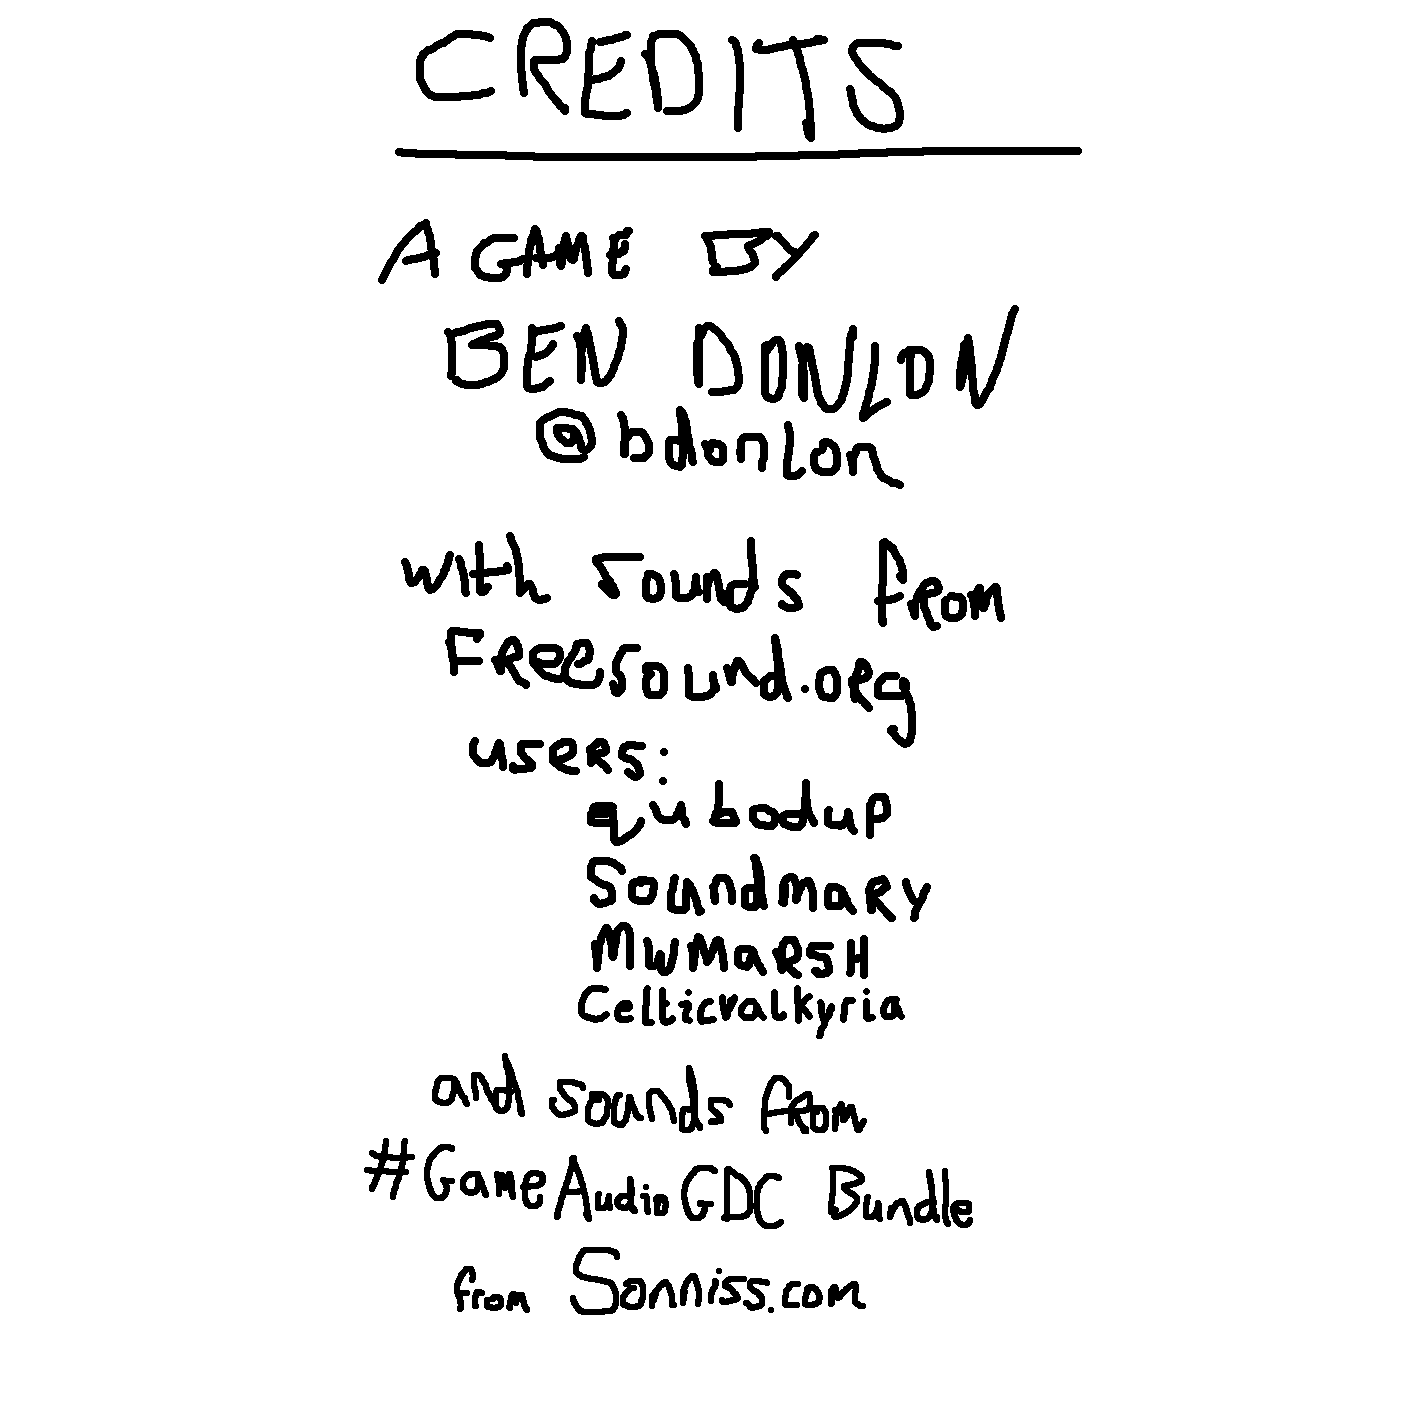 CREDITS
A GAME BY
BEN DONLON
@bdonlon
with sounds from
FReesound.oRg
useRs:
qubodup
SoundmaRy
MWMaRSH
Celticvalkyria
and sounds fRom
#GameAudioGDC Bundle
from Sonniss.com